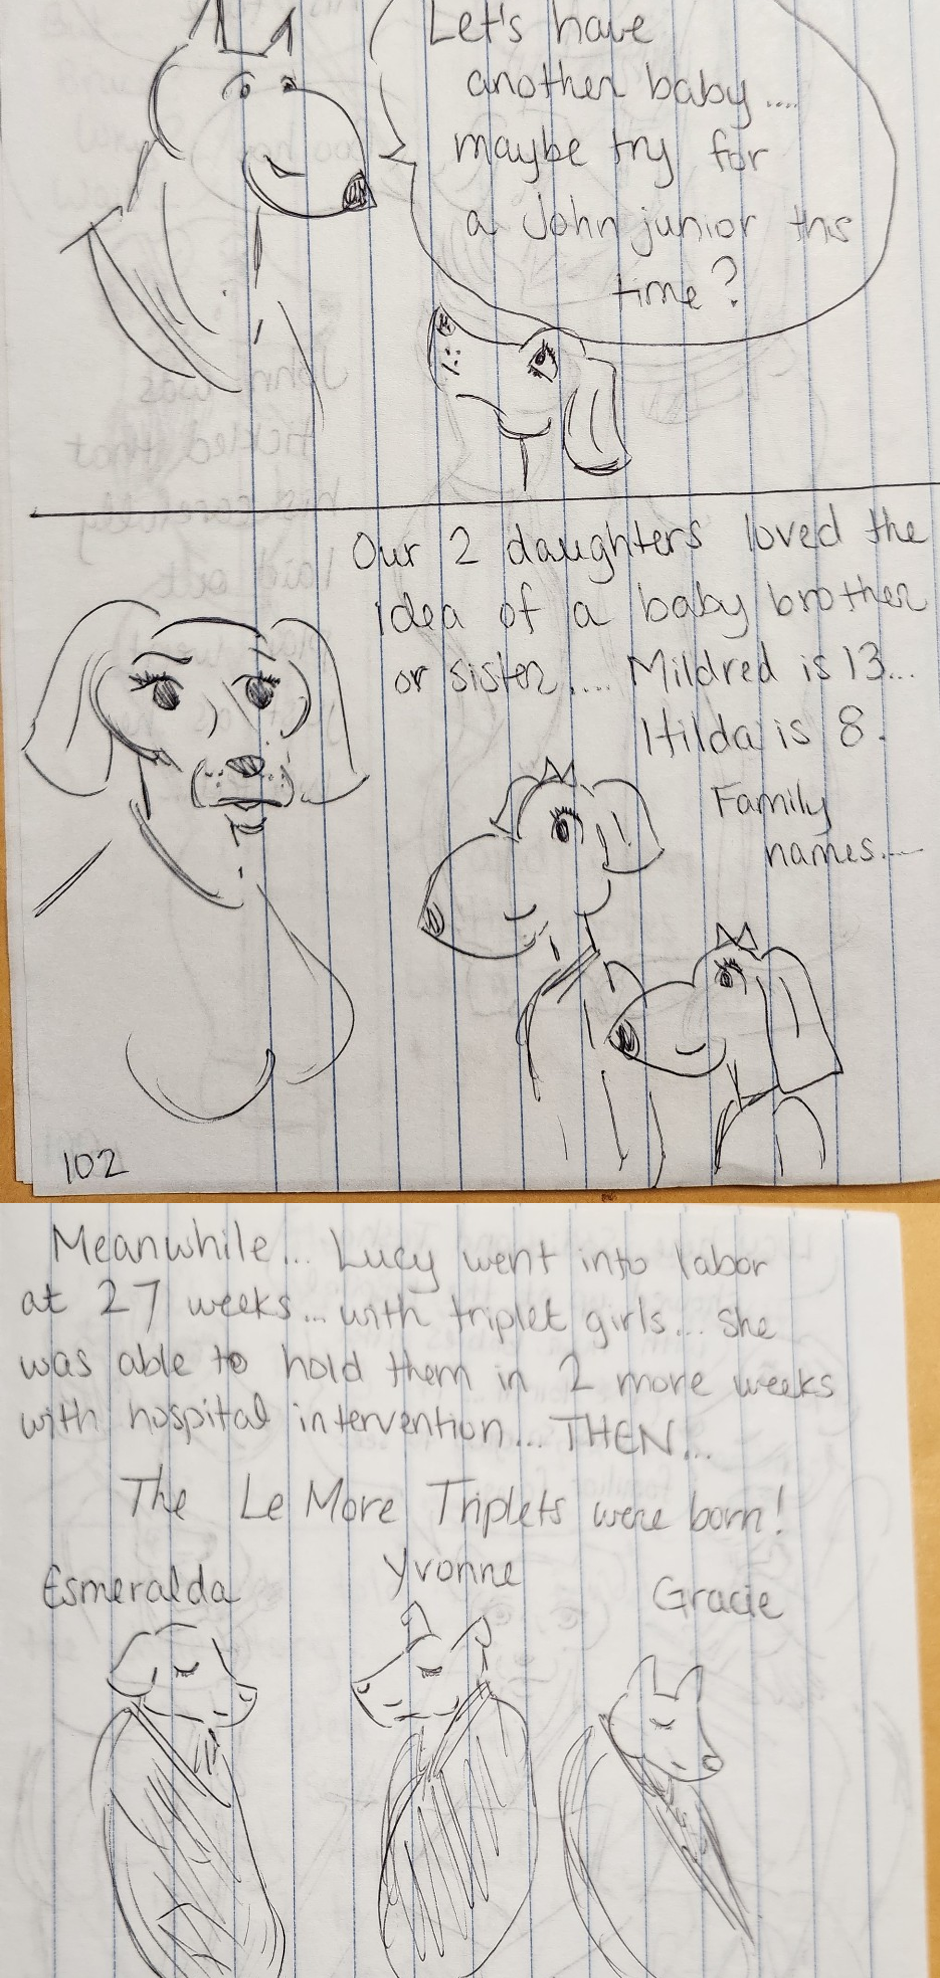 Let's have
another baby....
maybe try for
a John junior this
time?
Our 2 daughters loved the
idea of a baby brother
or sister.... Mildred is 13...
Hilda is 8.
Family
names....
102
Meanwhile... Lucy went into labor
at 27 weeks... with triplet girls... she
was able to hold them in 2 more weeks
with hospital intervention... THEN...
The Le More Triplets were born!
Esmeralda
Yvonne
Gracie